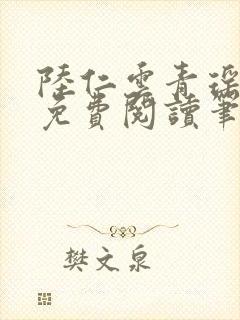 陸仁雲青瑤
免費閱讀筆
樊文泉